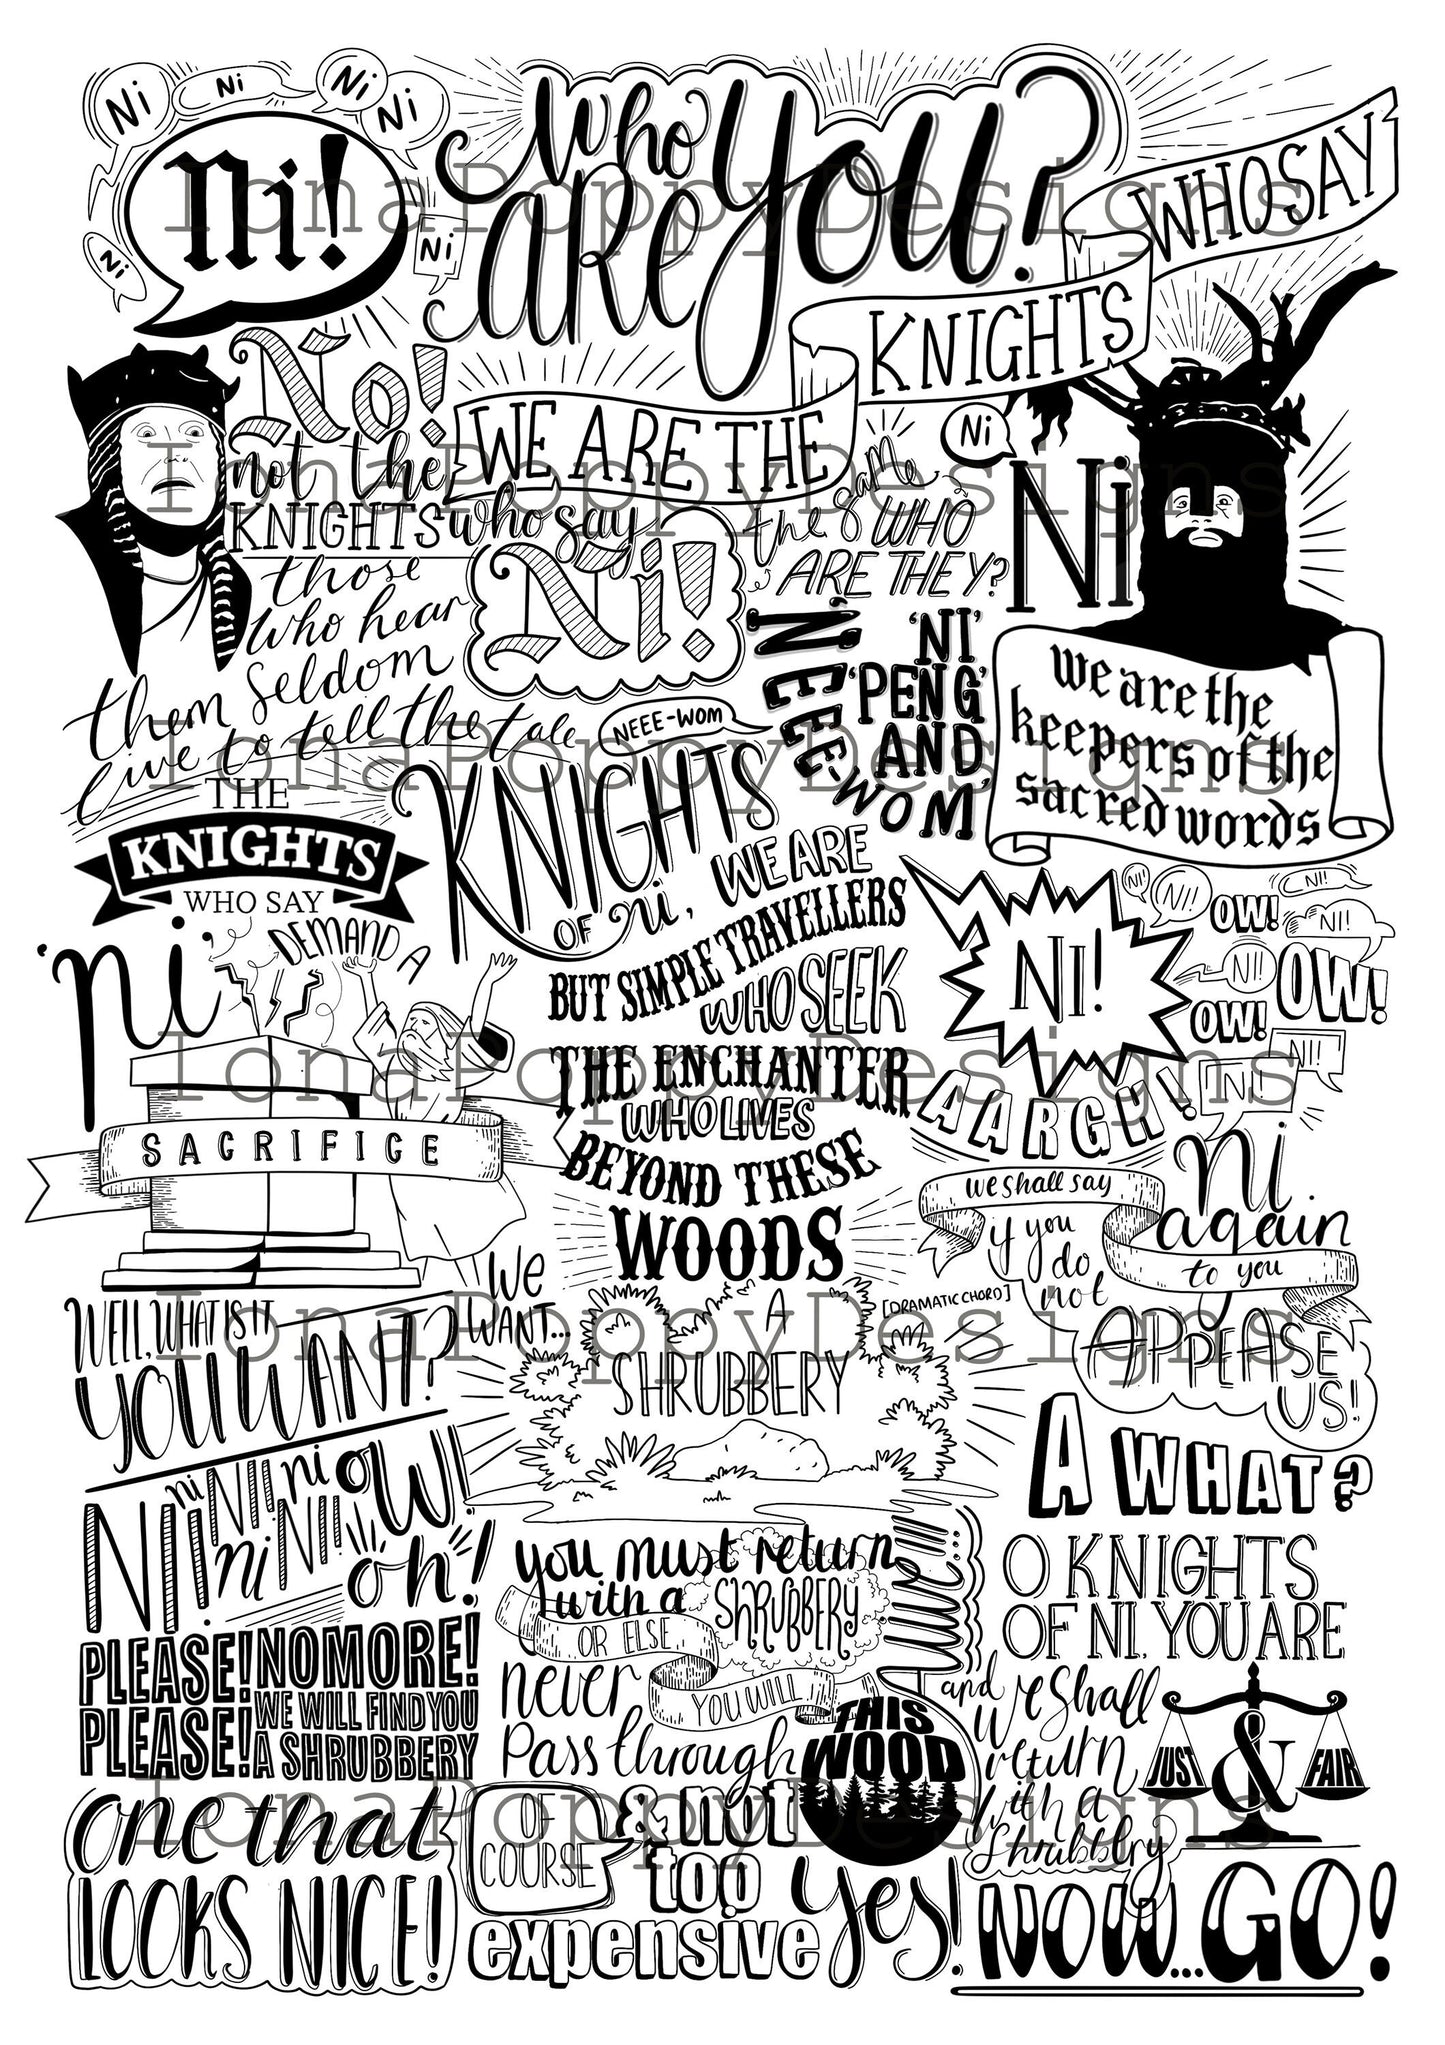 Ni
Ni
Ni
Ni
Ni!
Ni
Ni
who
ARE YOU?
WE ARE THE
KNIGHTS
WHO SAY
Ni
Ni
No!
not the
KNIGHTS who say
Ni!
the same
WHO
ARE THEY?
those
who hear
them seldom
live to tell the tale
we are the
keepers of the
sacred words
'NI'
'PENG'
AND
'NEEE-WOM'
'NEEE-WOM'
NEEE-WOM
THE
KNIGHTS
WHO SAY
'ni'
DEMAND A
SACRIFICE
KNIGHTS
OF Ni,
WE ARE
BUT SIMPLE TRAVELLERS
WHO SEEK
THE ENCHANTER
WHO LIVES
BEYOND THESE
WOODS
NI!
NI!
NI!
NI!
OW!
NI!
NI!
OW!
OW!
NI!
NI!
AARGH!
we shall say
ni
again
to you
if you
do
not
APPEASE
US!
WELL, WHAT IS IT
YOU WANT?
We
WANT...
A
SHRUBBERY
[DRAMATIC CHORD]
A WHAT?
NI!
ni
NI!
ni
ni
NI!
OW!
oh!
PLEASE!
PLEASE!
NO MORE!
WE WILL FIND YOU
A SHRUBBERY
you must return
with a
SHRUBBERY
OR ELSE
YOU WILL
never
Pass through
THIS
WOOD
Alive...
O KNIGHTS
OF NI, YOU ARE
JUST
&
FAIR
and
we shall
return
with a
shrubbery
one that
LOOKS NICE!
OF
COURSE
& not
too
expensive
Yes!
NOW...GO!
IonaPoppyDesigns
IonaPoppyDesigns
IonaPoppyDesigns
IonaPoppyDesigns
IonaPoppyDesigns
IonaPoppyDesigns